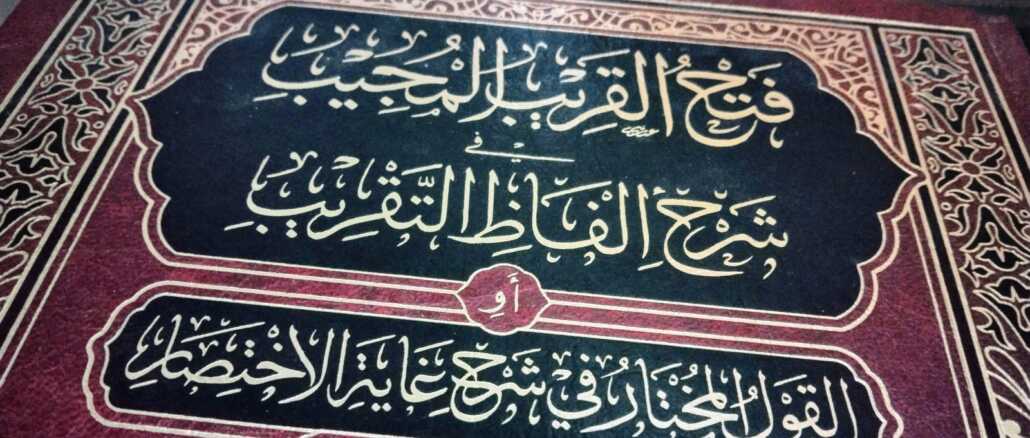 فَتْحُ الْقَرِيْبِ الْمُجِيْبِ
فِيْ
شَرْحِ أَلْفَاظِ التَّقْرِيْبِ
أَوِ
الْقَوْلُ الْمُخْتَارُ فِيْ شَرْحِ غَايَةِ الْاِخْتِصَارِ